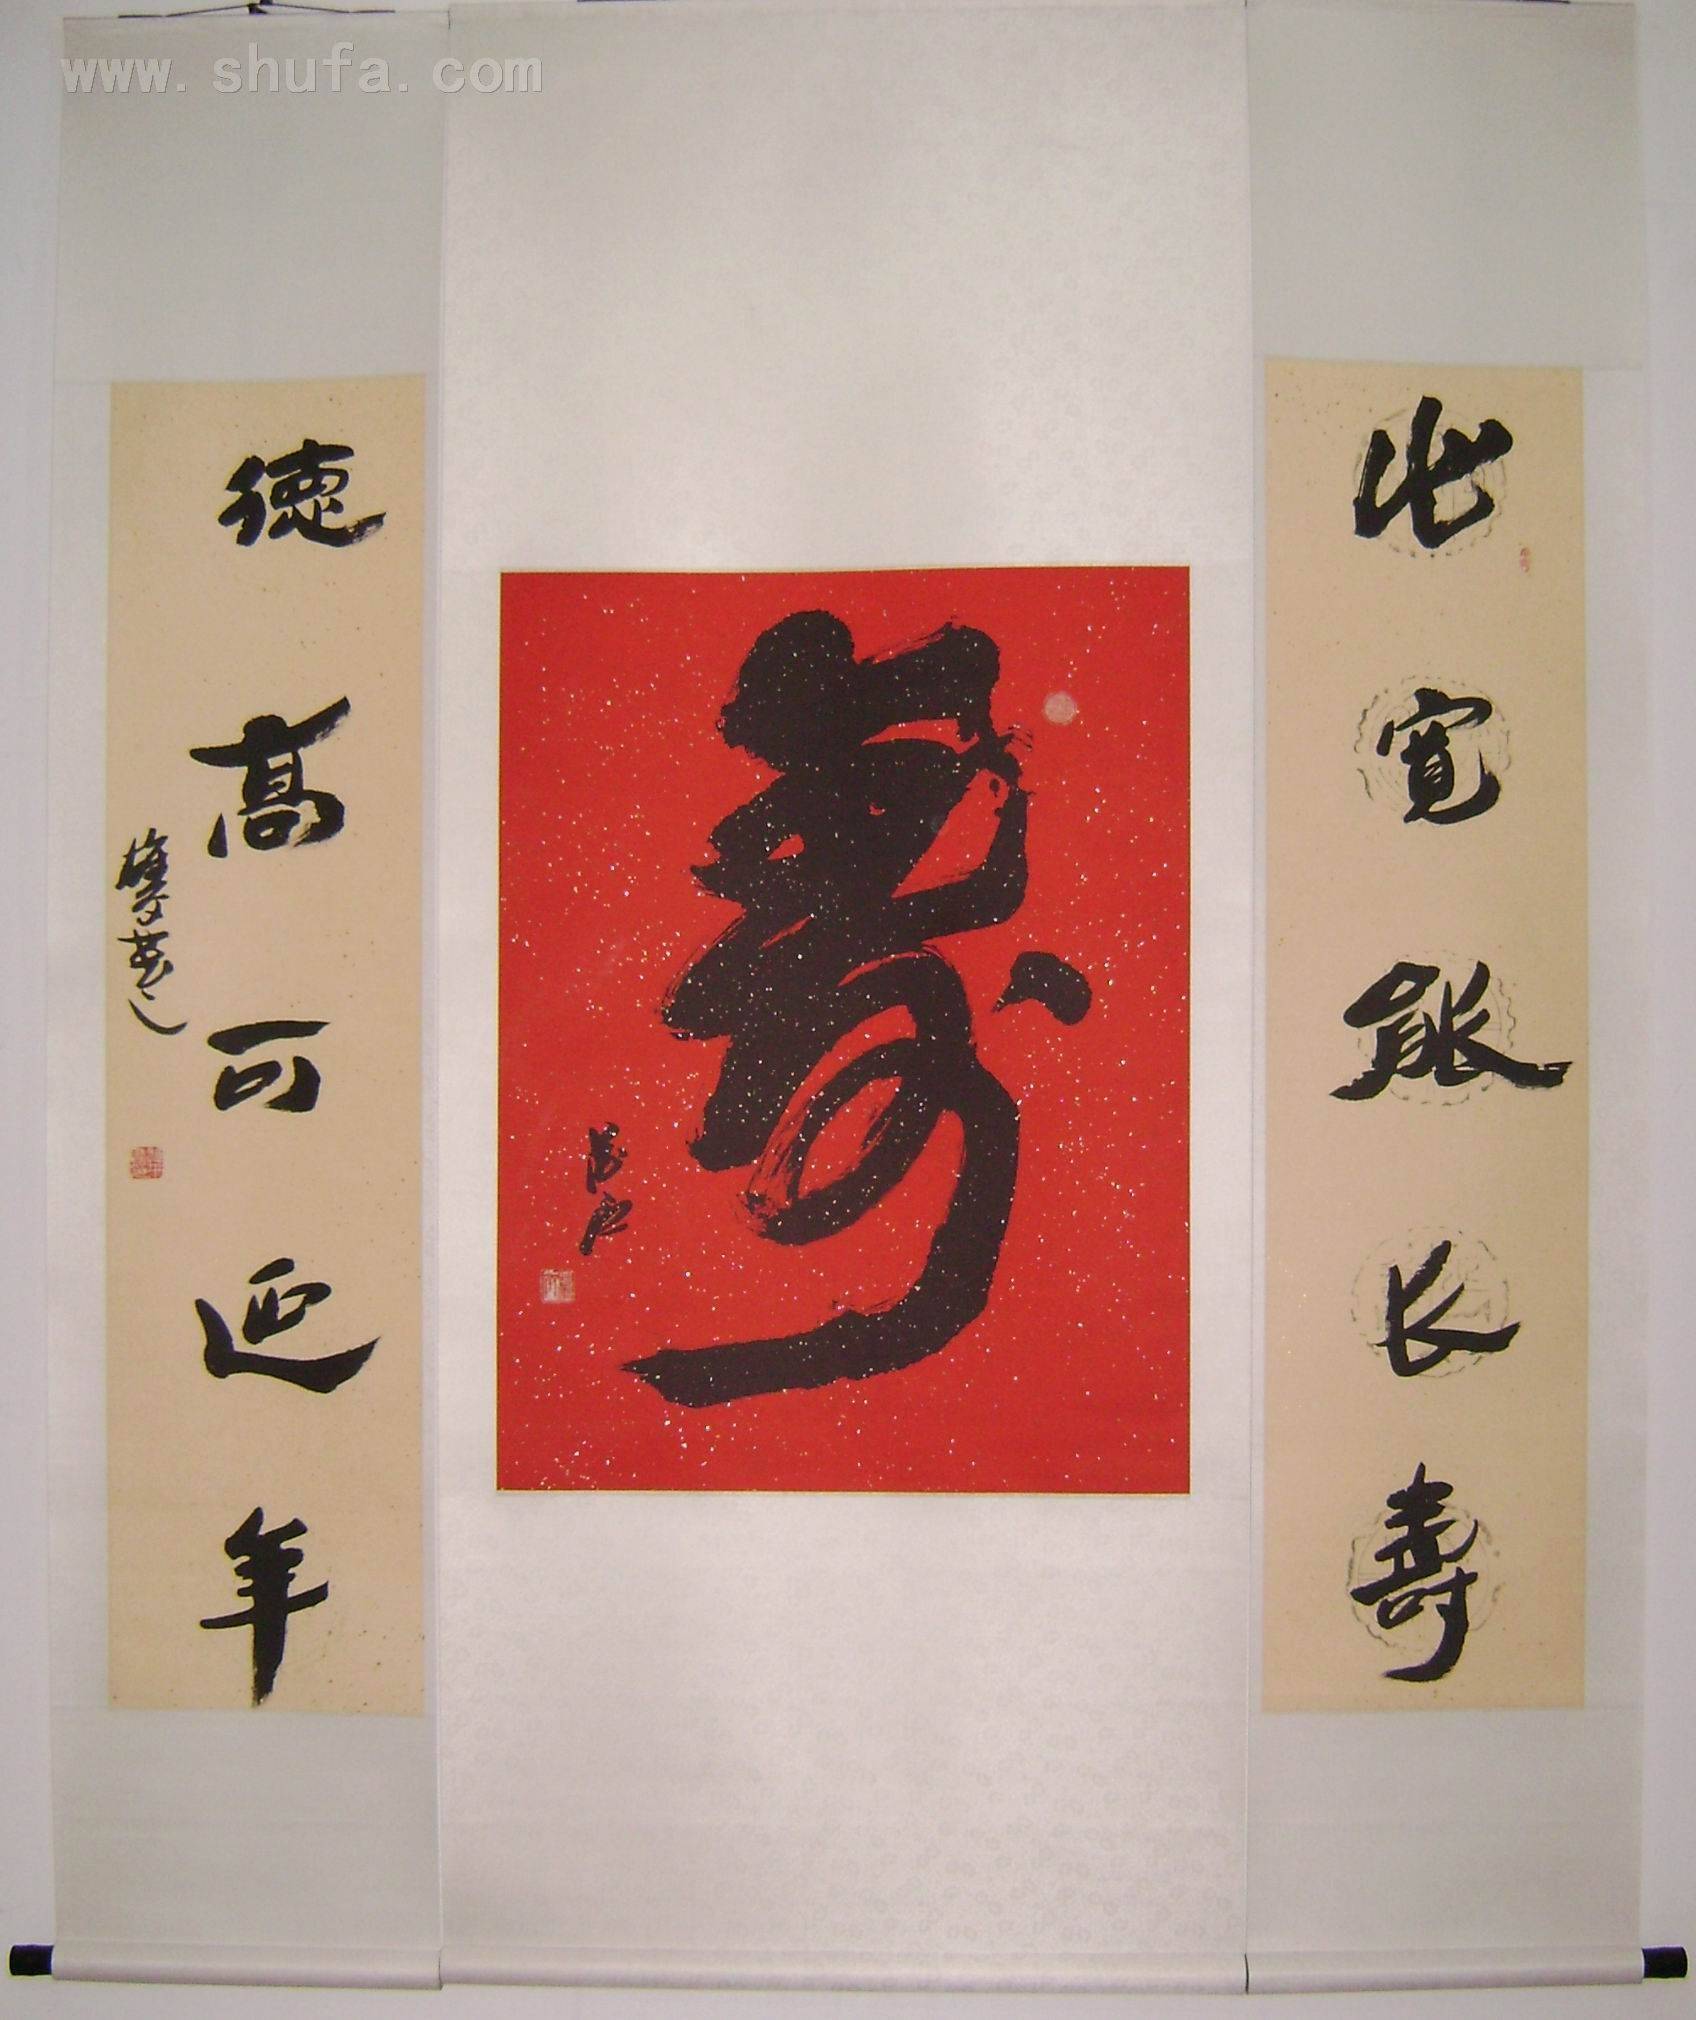 www.shufa.com
心宽能长寿
寿
德高可延年